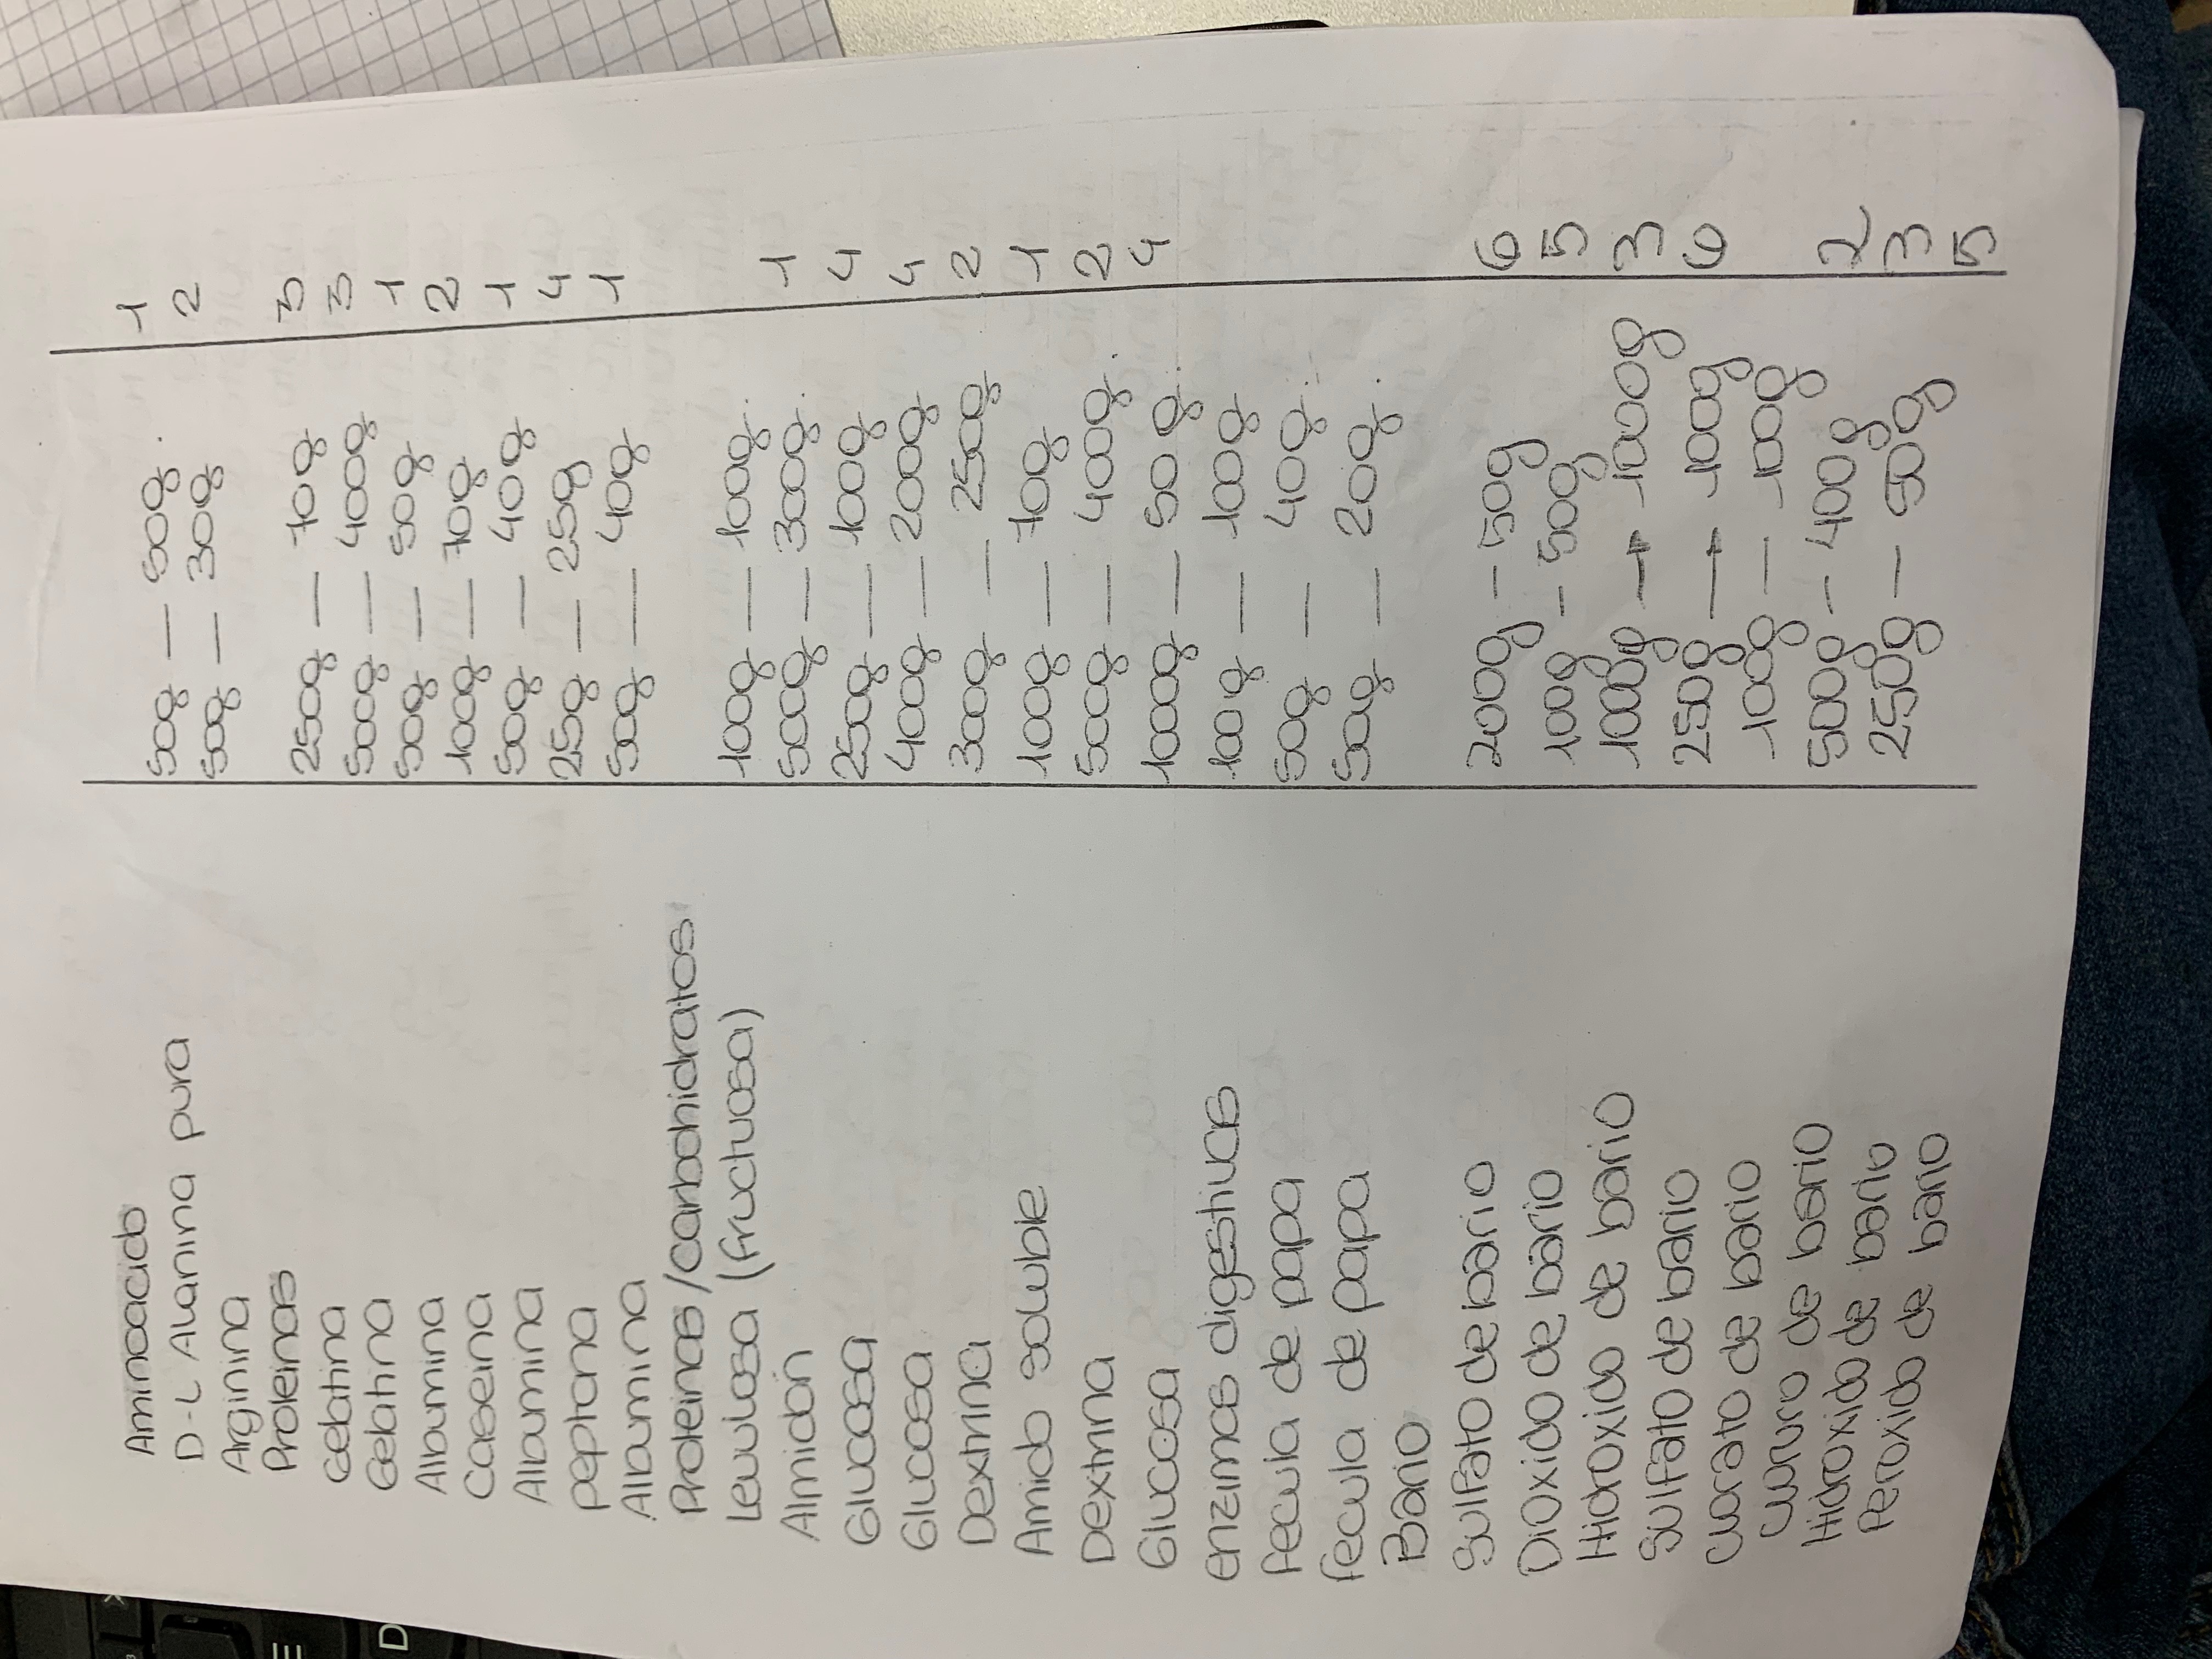 Aminoacido
D-L Alanina pura 50g — 50g. 1
Arginina 50g — 30g 2
Proteinas
Gelatina 250g — 70g 3
Gelatina 500g — 400g 3
Albumina 50g — 50g 1
Caseina 100g — 70g 2
Albumina 50g — 40g 1
peptona 25g — 25g 4
Albumina 50g — 40g 1
Proteinas/carbohidratos
Levulosa (fructuosa) 100g — 100g.
Almidón 500g — 300g. 1
Glucosa 250g — 100g 4
Glucosa 400g — 200g 4
Dextrina 300g — 250g 2
Amido soluble 100g — 70g 1
Dextrina 500g — 400g. 2
Glucosa 1000g — 50g. 4
enzimas digestivas 100g — 100g
fecula de papa 50g — 40g.
fecula de papa 50g — 20g.
Bario
Sulfato de bario 200g - 50g 6
Dioxido de bario 100g - 50g 5
Hidroxido de bario 1000g → 1000g 3
Sulfato de bario 250g → 100g 6
clorato de bario 100g — 100g
cloruro de bario 500g - 400g 2
Hidroxido de bario 250g — 50g 3
Peroxido de bario 5